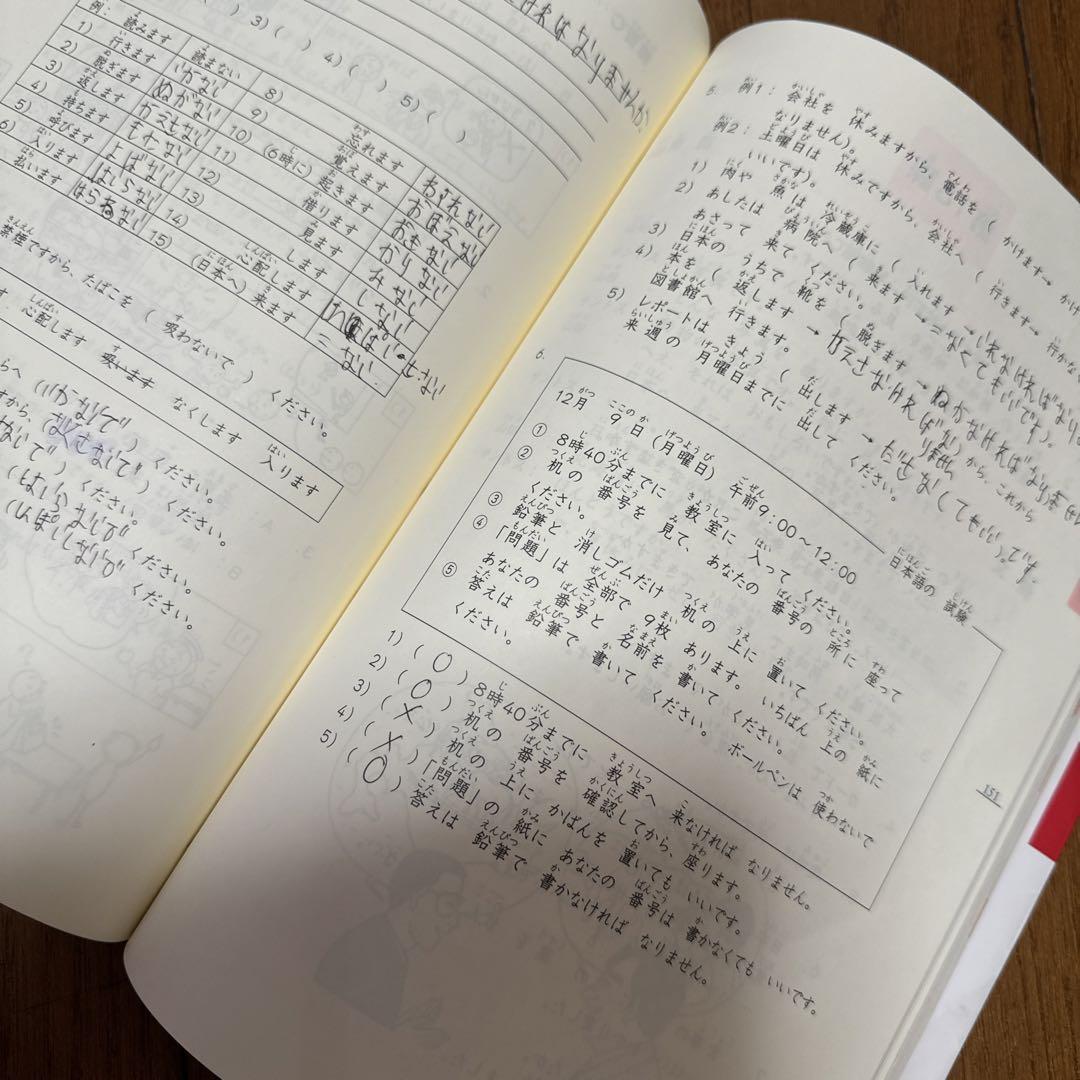 ) 3) ( ) 4) ( ) 5) ( )
ければなりませんか。
例： 読みます 読まない
1) 行きます いかない
2) 脱ぎます ぬがない
3) 返します
4) 持ちます もたない
5) 呼びます よばない
6) 入ります はいらない
払います はらわない
8) 忘れます わすれない
9) 覚えます おぼえない
10) (6時に) 起きます おきない
11) 借ります かりない
12) 見ます みない
13) します しない
14) 心配します
15) (日本へ) 来ます こない
禁煙ですから、たばこを ( 吸わないで ) ください。
心配します 吸います なくします 入ります
らへ (いかないで) ください。
すから、 なくさないで ) ください。
ないで ) ください。
(はいらないで ください。
ください。
5. 例1： 会社を 休みますから、電話を ( かけます→ かけ
なりません)。
例2： 土曜日は 休みですから、会社へ ( 行きます→ 行かな
いいです)。
1) 肉や 魚は 冷蔵庫に ( 入れます → いれなければなり
2) あしたは 病院へ ( 来ます → こなくてもいいです)。
あさって 来て ください。
3) 日本の うちで 靴を ( 脱ぎます → ぬがなければなりません
4) 本を ( 返します → かえさなければなりません) から、これから
図書館へ 行きます。
5) レポートは きょう ( 出します → ださなくてもいい)です。
来週の 月曜日までに 出して ください。
6.
日本語の 試験
12月 9日 (月曜日) 午前9：00～12：00
① 8時40分までに 教室に 入って ください。
② 机の 番号を 見て、あなたの 番号の 所に 座って
ください。
③ 鉛筆と 消しゴムだけ 机の 上に 置いて ください。
④ 「問題」は 全部で 9枚 あります。 いちばん 上の 紙に
あなたの 番号と 名前を 書いて ください。
⑤ 答えは 鉛筆で 書いて ください。 ボールペンは 使わないで
ください。
1) ( ○ ) 8時40分までに 教室へ 来なければ なりません。
2) ( ○ ) 机の 番号を 確認してから、座ります。
3) ( × ) 机の 上に かばんを 置いても いいです。
4) ( × ) 「問題」の 紙に あなたの 番号は 書かなくても いいです。
5) ( ○ ) 答えは 鉛筆で 書かなければ なりません。
151